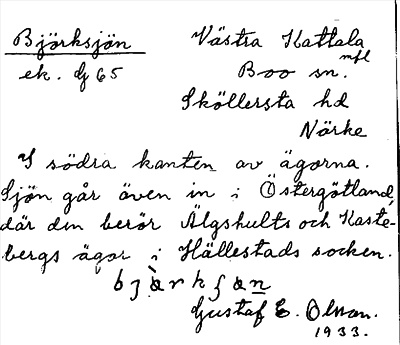 Björksjön Västra Kattala mfl
ek. G 65 Boo sn.
Sköllersta hd
Närke
I södra kanten av ägorna.
Sjön går även in i Östergötland,
där den berör Älgshults och Kaste-
bergs ägor i Hällestads socken.
Gustaf E. Olsson.
1933.